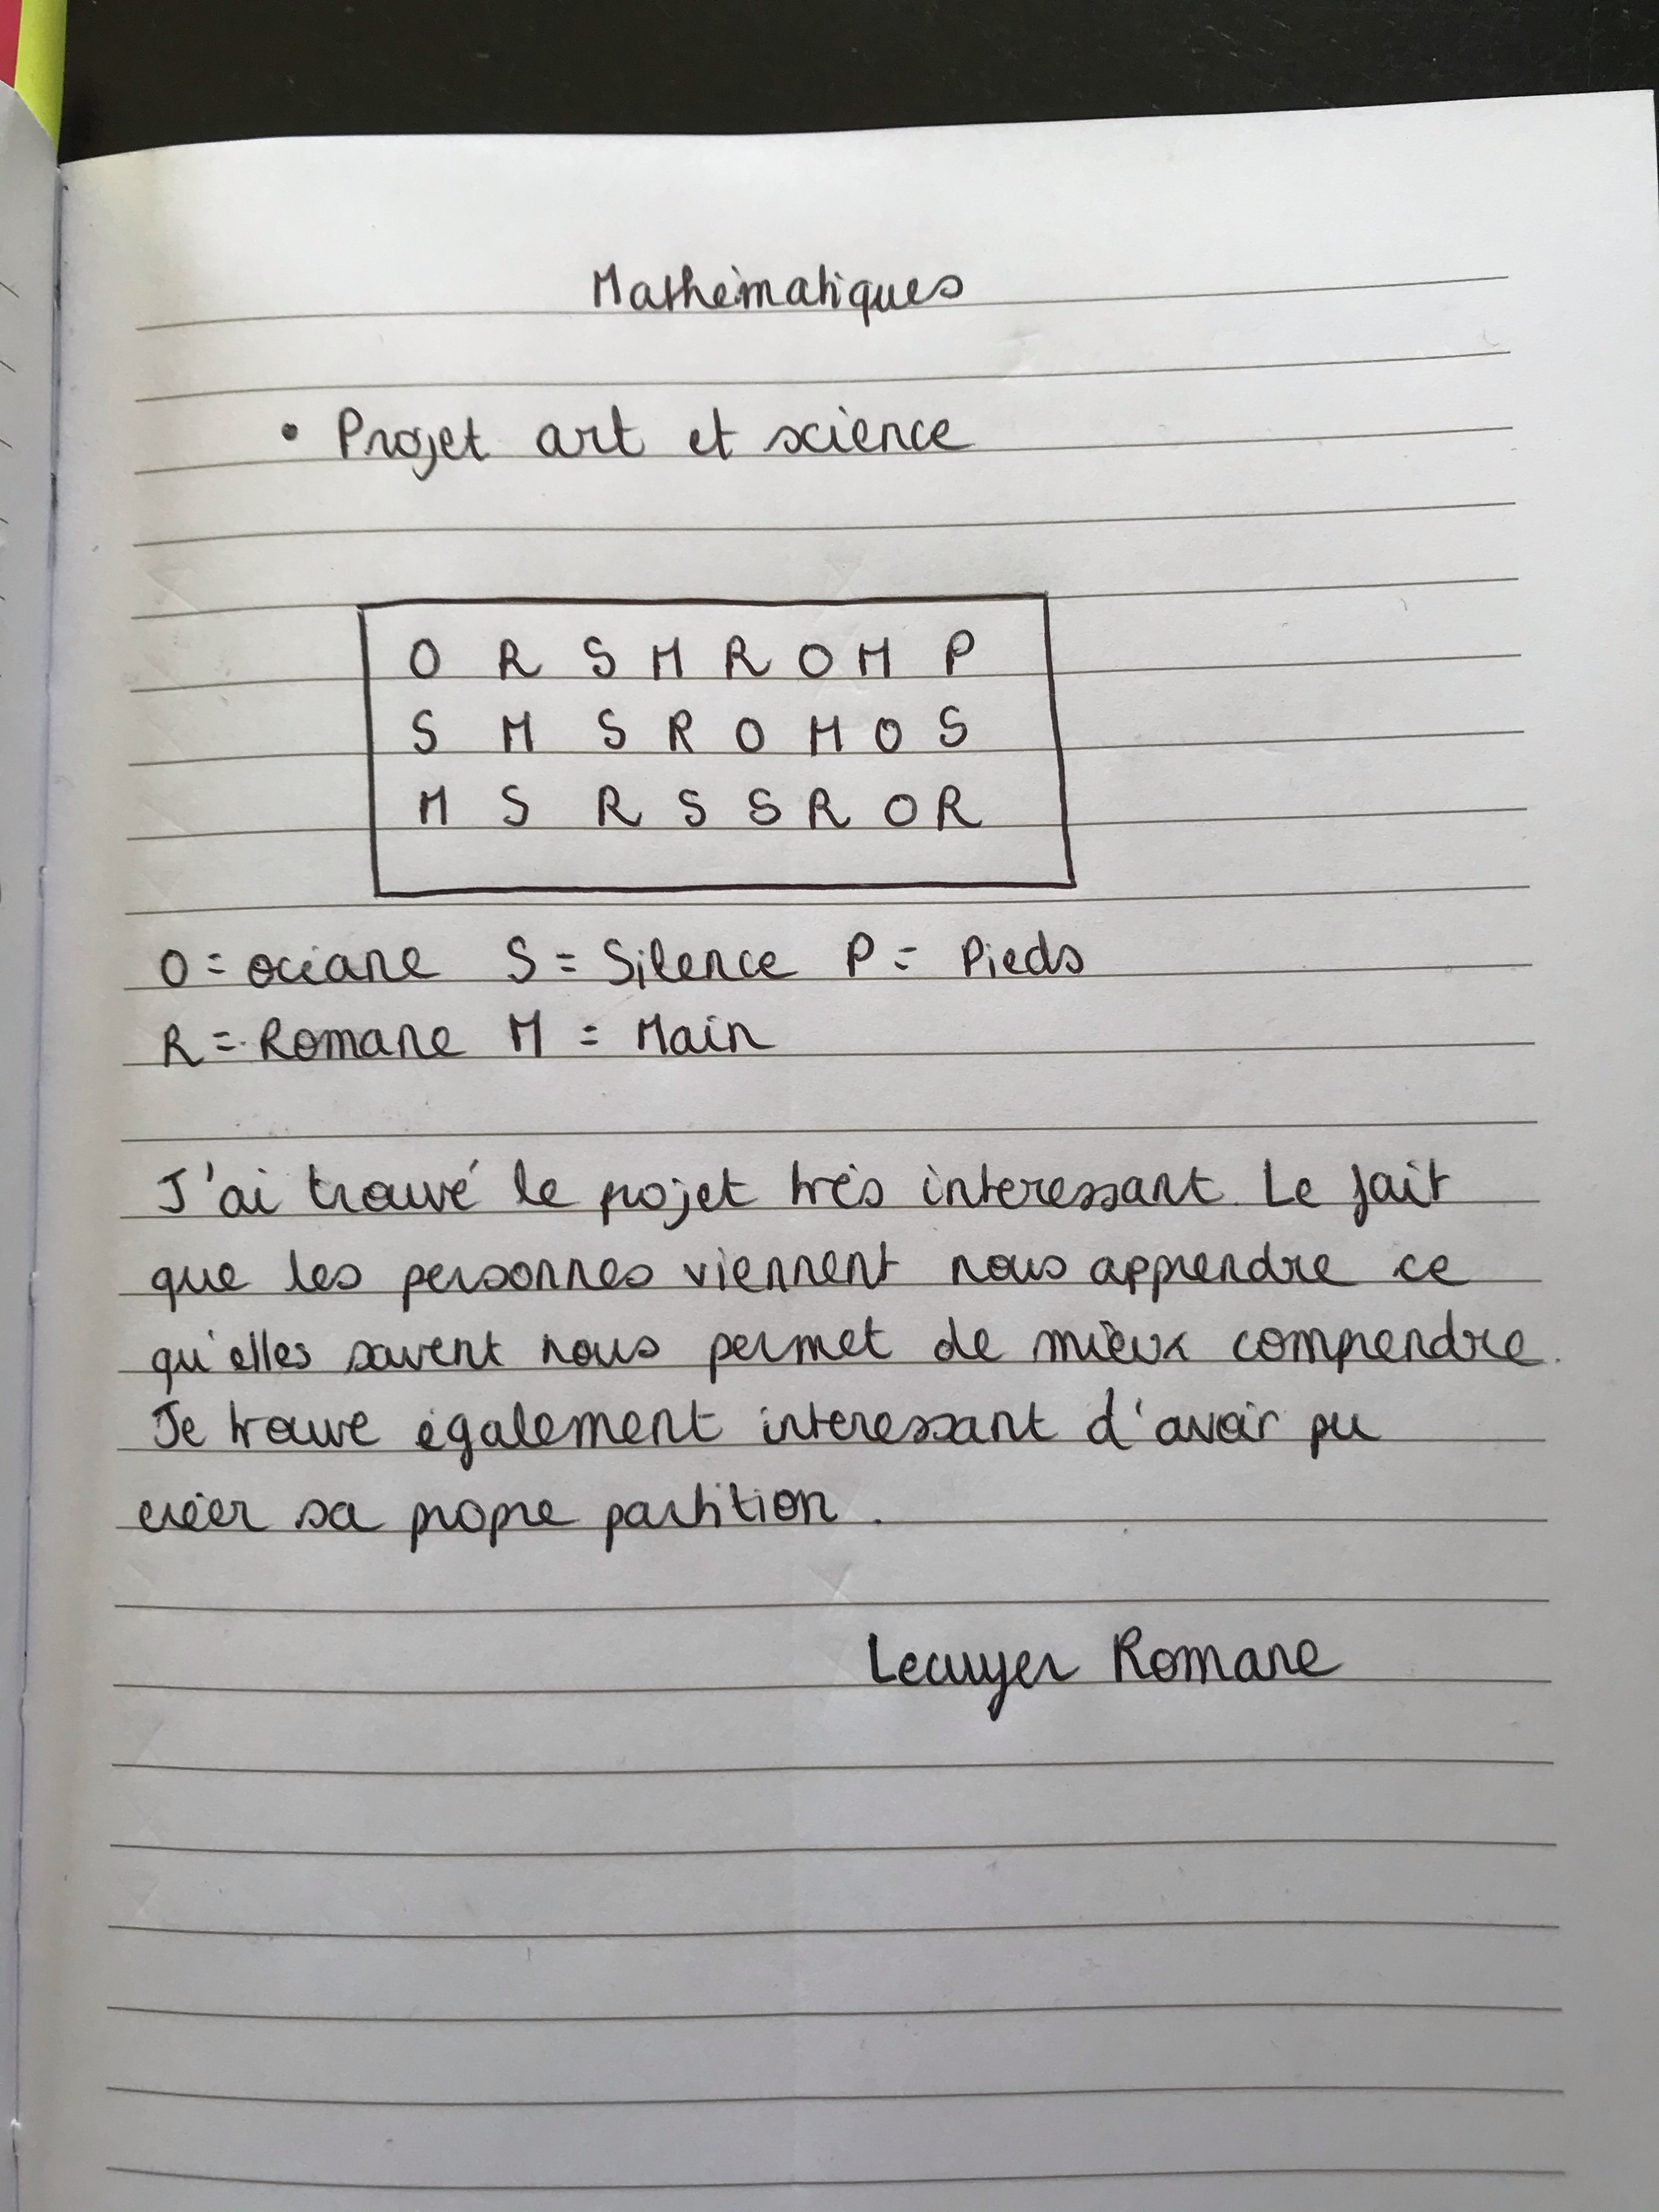 Mathématiques
• Projet art et science
O R S M R O M P
S M S R O M O S
M S R S S R O R
O = océane S = Silence P = Pieds
R = Romane M = Main
J'ai trouvé le projet très interessant. Le fait
que les personnes viennent nous apprendre ce
qu'elles savent nous permet de mieux comprendre.
Je trouve également interessant d'avoir pu
créer sa propre partition.
Lecuyer Romane